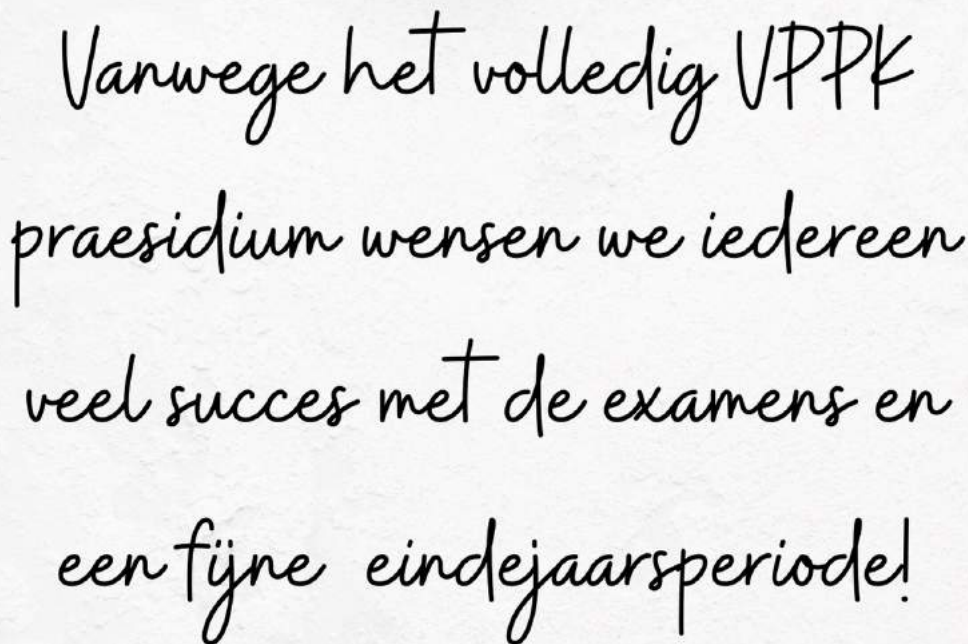 Vanwege het volledig VPPK
praesidium wensen we iedereen
veel succes met de examens en
een fijne eindejaarsperiode!